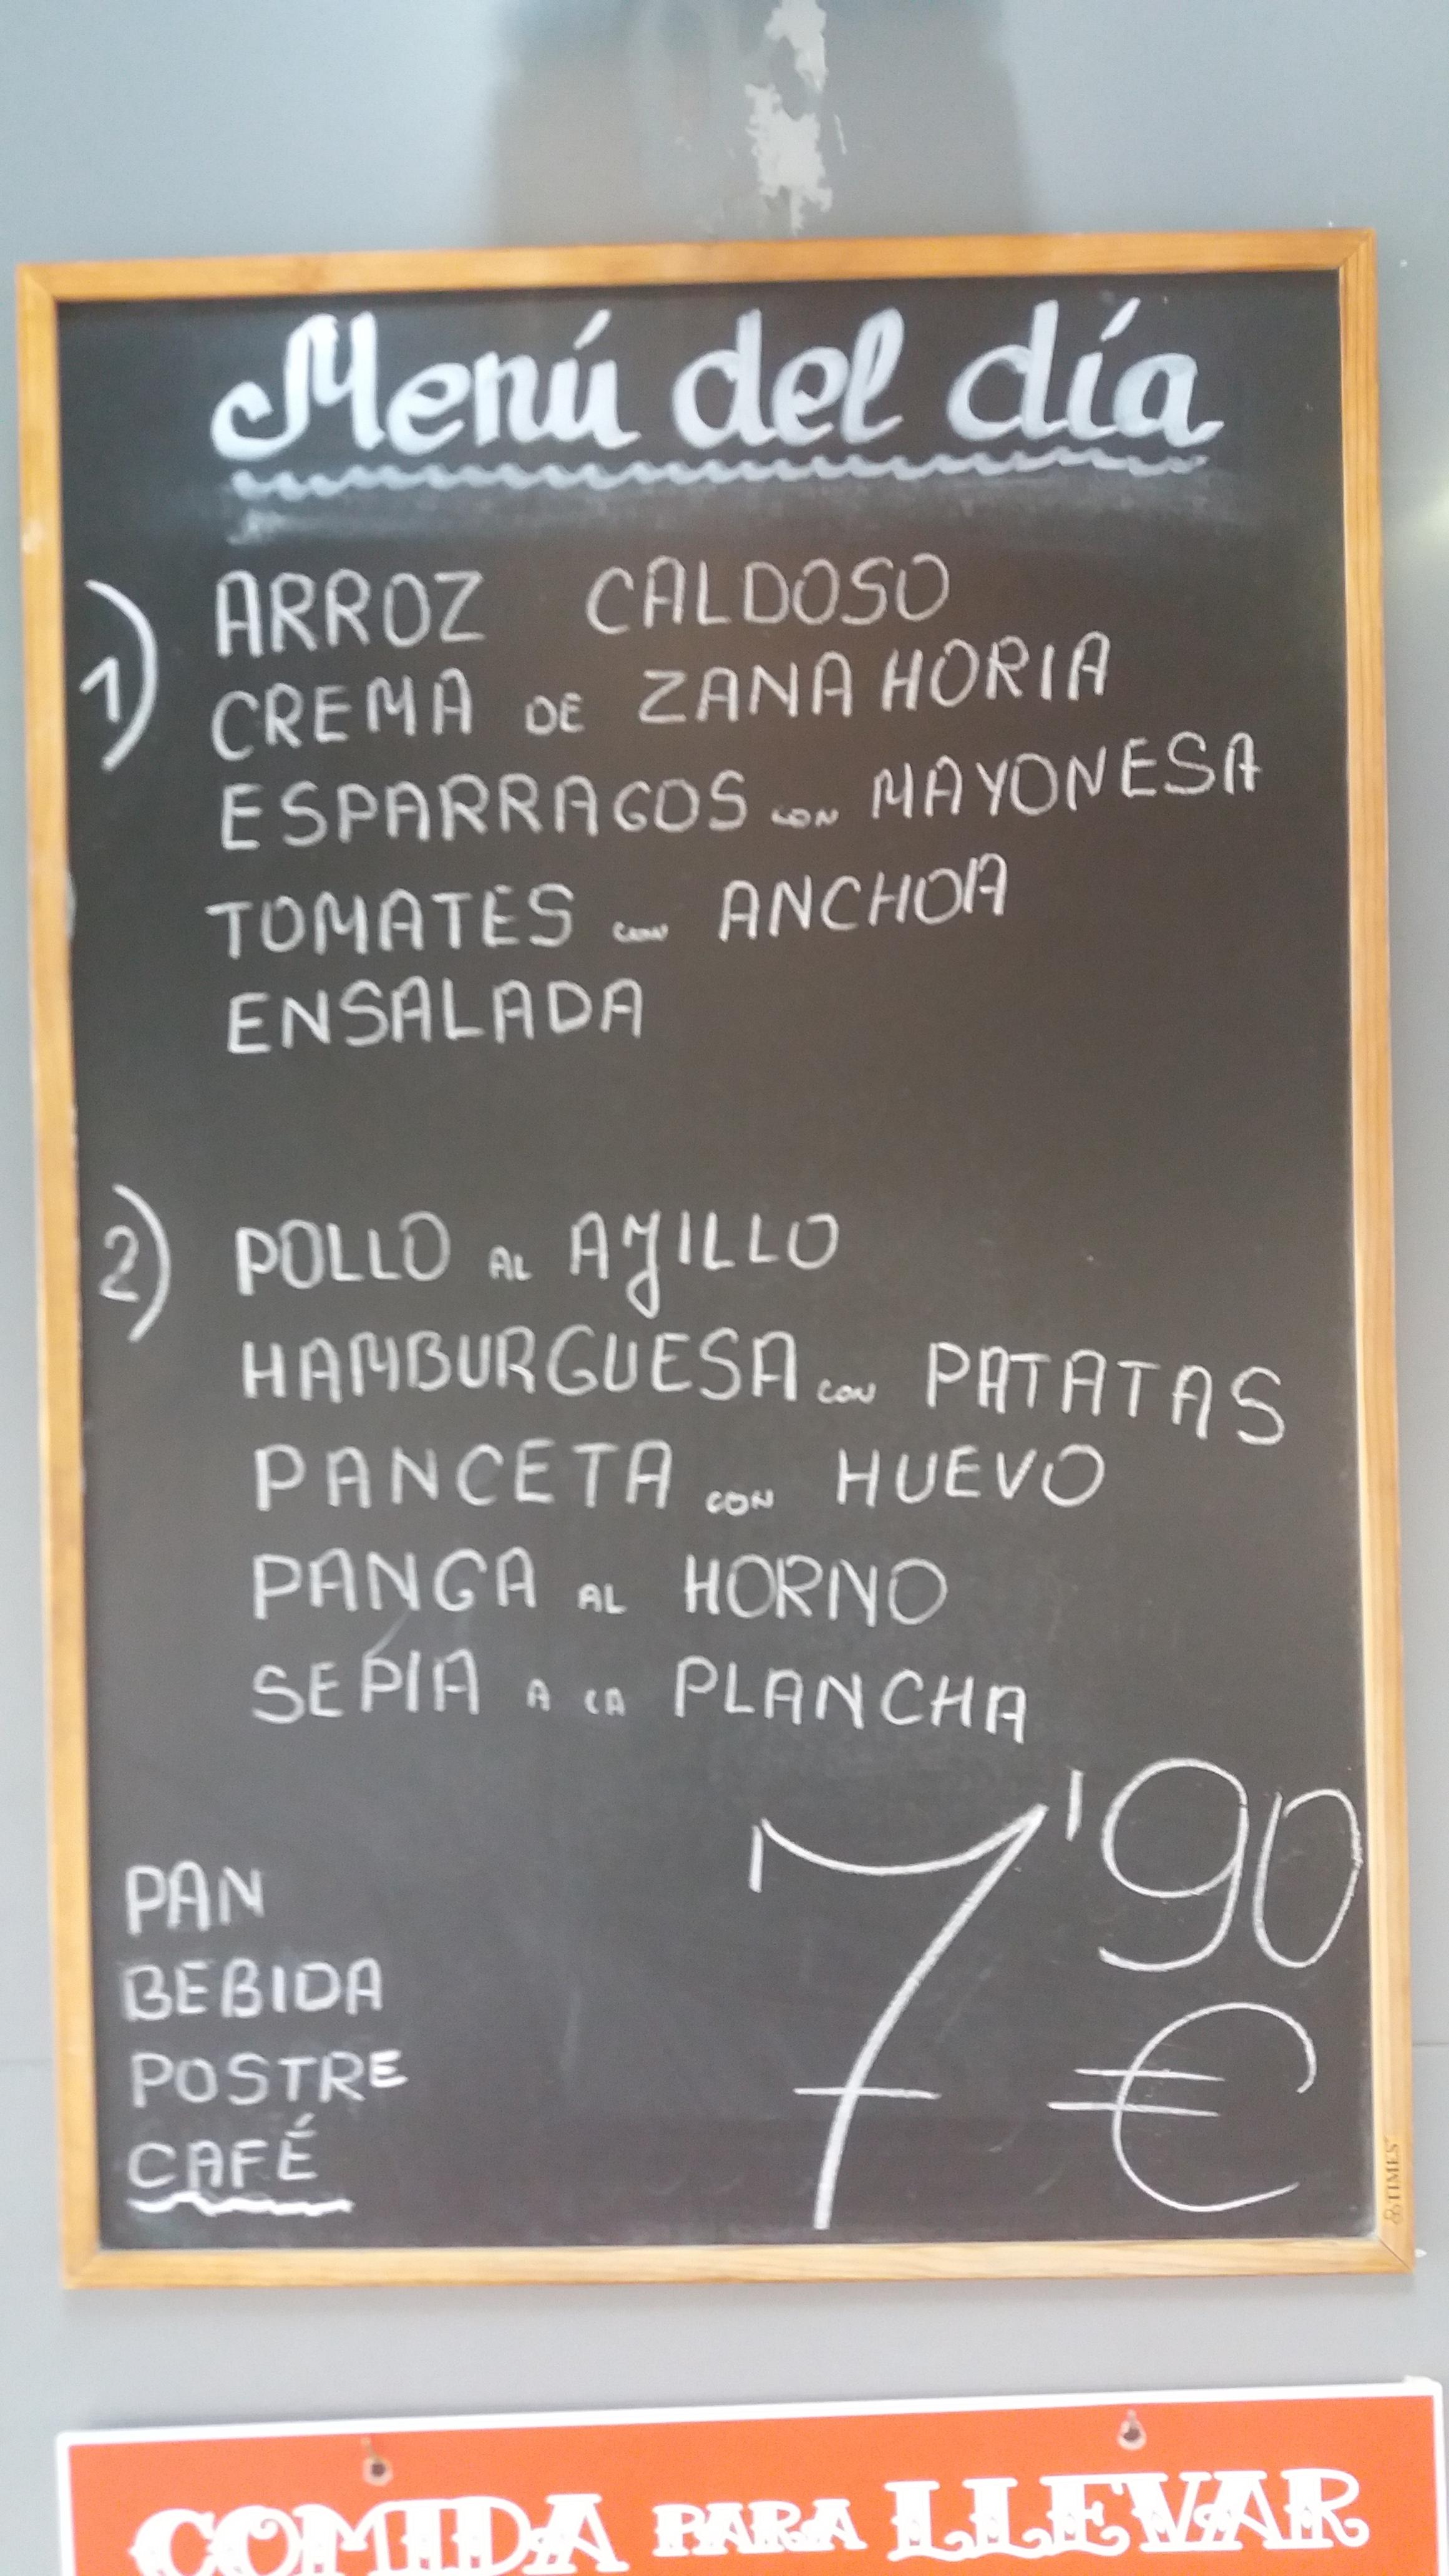 Menú del día
1) ARROZ CALDOSO
CREMA DE ZANAHORIA
ESPARRAGOS CON MAYONESA
TOMATES CON ANCHOA
ENSALADA
2) POLLO AL AJILLO
HAMBURGUESA CON PATATAS
PANCETA CON HUEVO
PANGA AL HORNO
SEPIA A LA PLANCHA
PAN
BEBIDA
POSTRE
CAFÉ
7'90
€
TIMES
COMIDA PARA LLEVAR